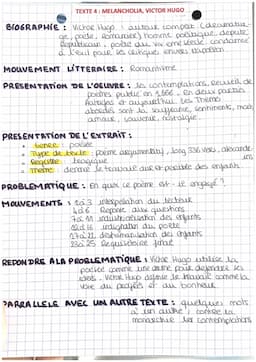 TEXTE 4 : MELANCHOLIA, VICTOR HUGO
BIOGRAPHIE : Victor Hugo : auteur complet (dramatur-
ge, poète, romancier) homme politique, député
Républicain, poète du XIX eme siècle condamné
à l'exil pour ses critiques envers
MOUVEMENT LITTERAIRE : Romantisme
PRESENTATION DE L'OEUVRE : les contemplations, recueil de
poèmes publié en 1856. En deux parties
Autrefois et aujourd'hui. Les thèmes
abordés sont la souffrance, sentiments, mort,
amour, souvenir, nostalgie.
PRESENTATION DE L'EXTRAIT :
Genre : poésie
Type de texte : poème argumentatif, long 336 vers, alexandr
ins
Registre : tragique
Thème : dénonce le travail dur et pénible des enfants
PROBLEMATIQUE : En quoi ce poème est-il engagé ?
MOUVEMENTS : 1 à 3 interpellation du lecteur
4 à 6 Réponse aux questions
7 à 11 industrialisation des enfants
12 à 16 indignation du poète
17 à 22 déshumanisation des enfants
23 à 25 Réquisitoire final
REPONDRE A LA PROBLEMATIQUE : Victor Hugo utilise la
poésie comme une arme pour défendre ses
idées. Victor Hugo définie le travail comme la
voie du progrès et au bonheur.
PARRALLELE AVEC UN AUTRE TEXTE : quelques mots
à un autre, contre la
monarchie les contemplations